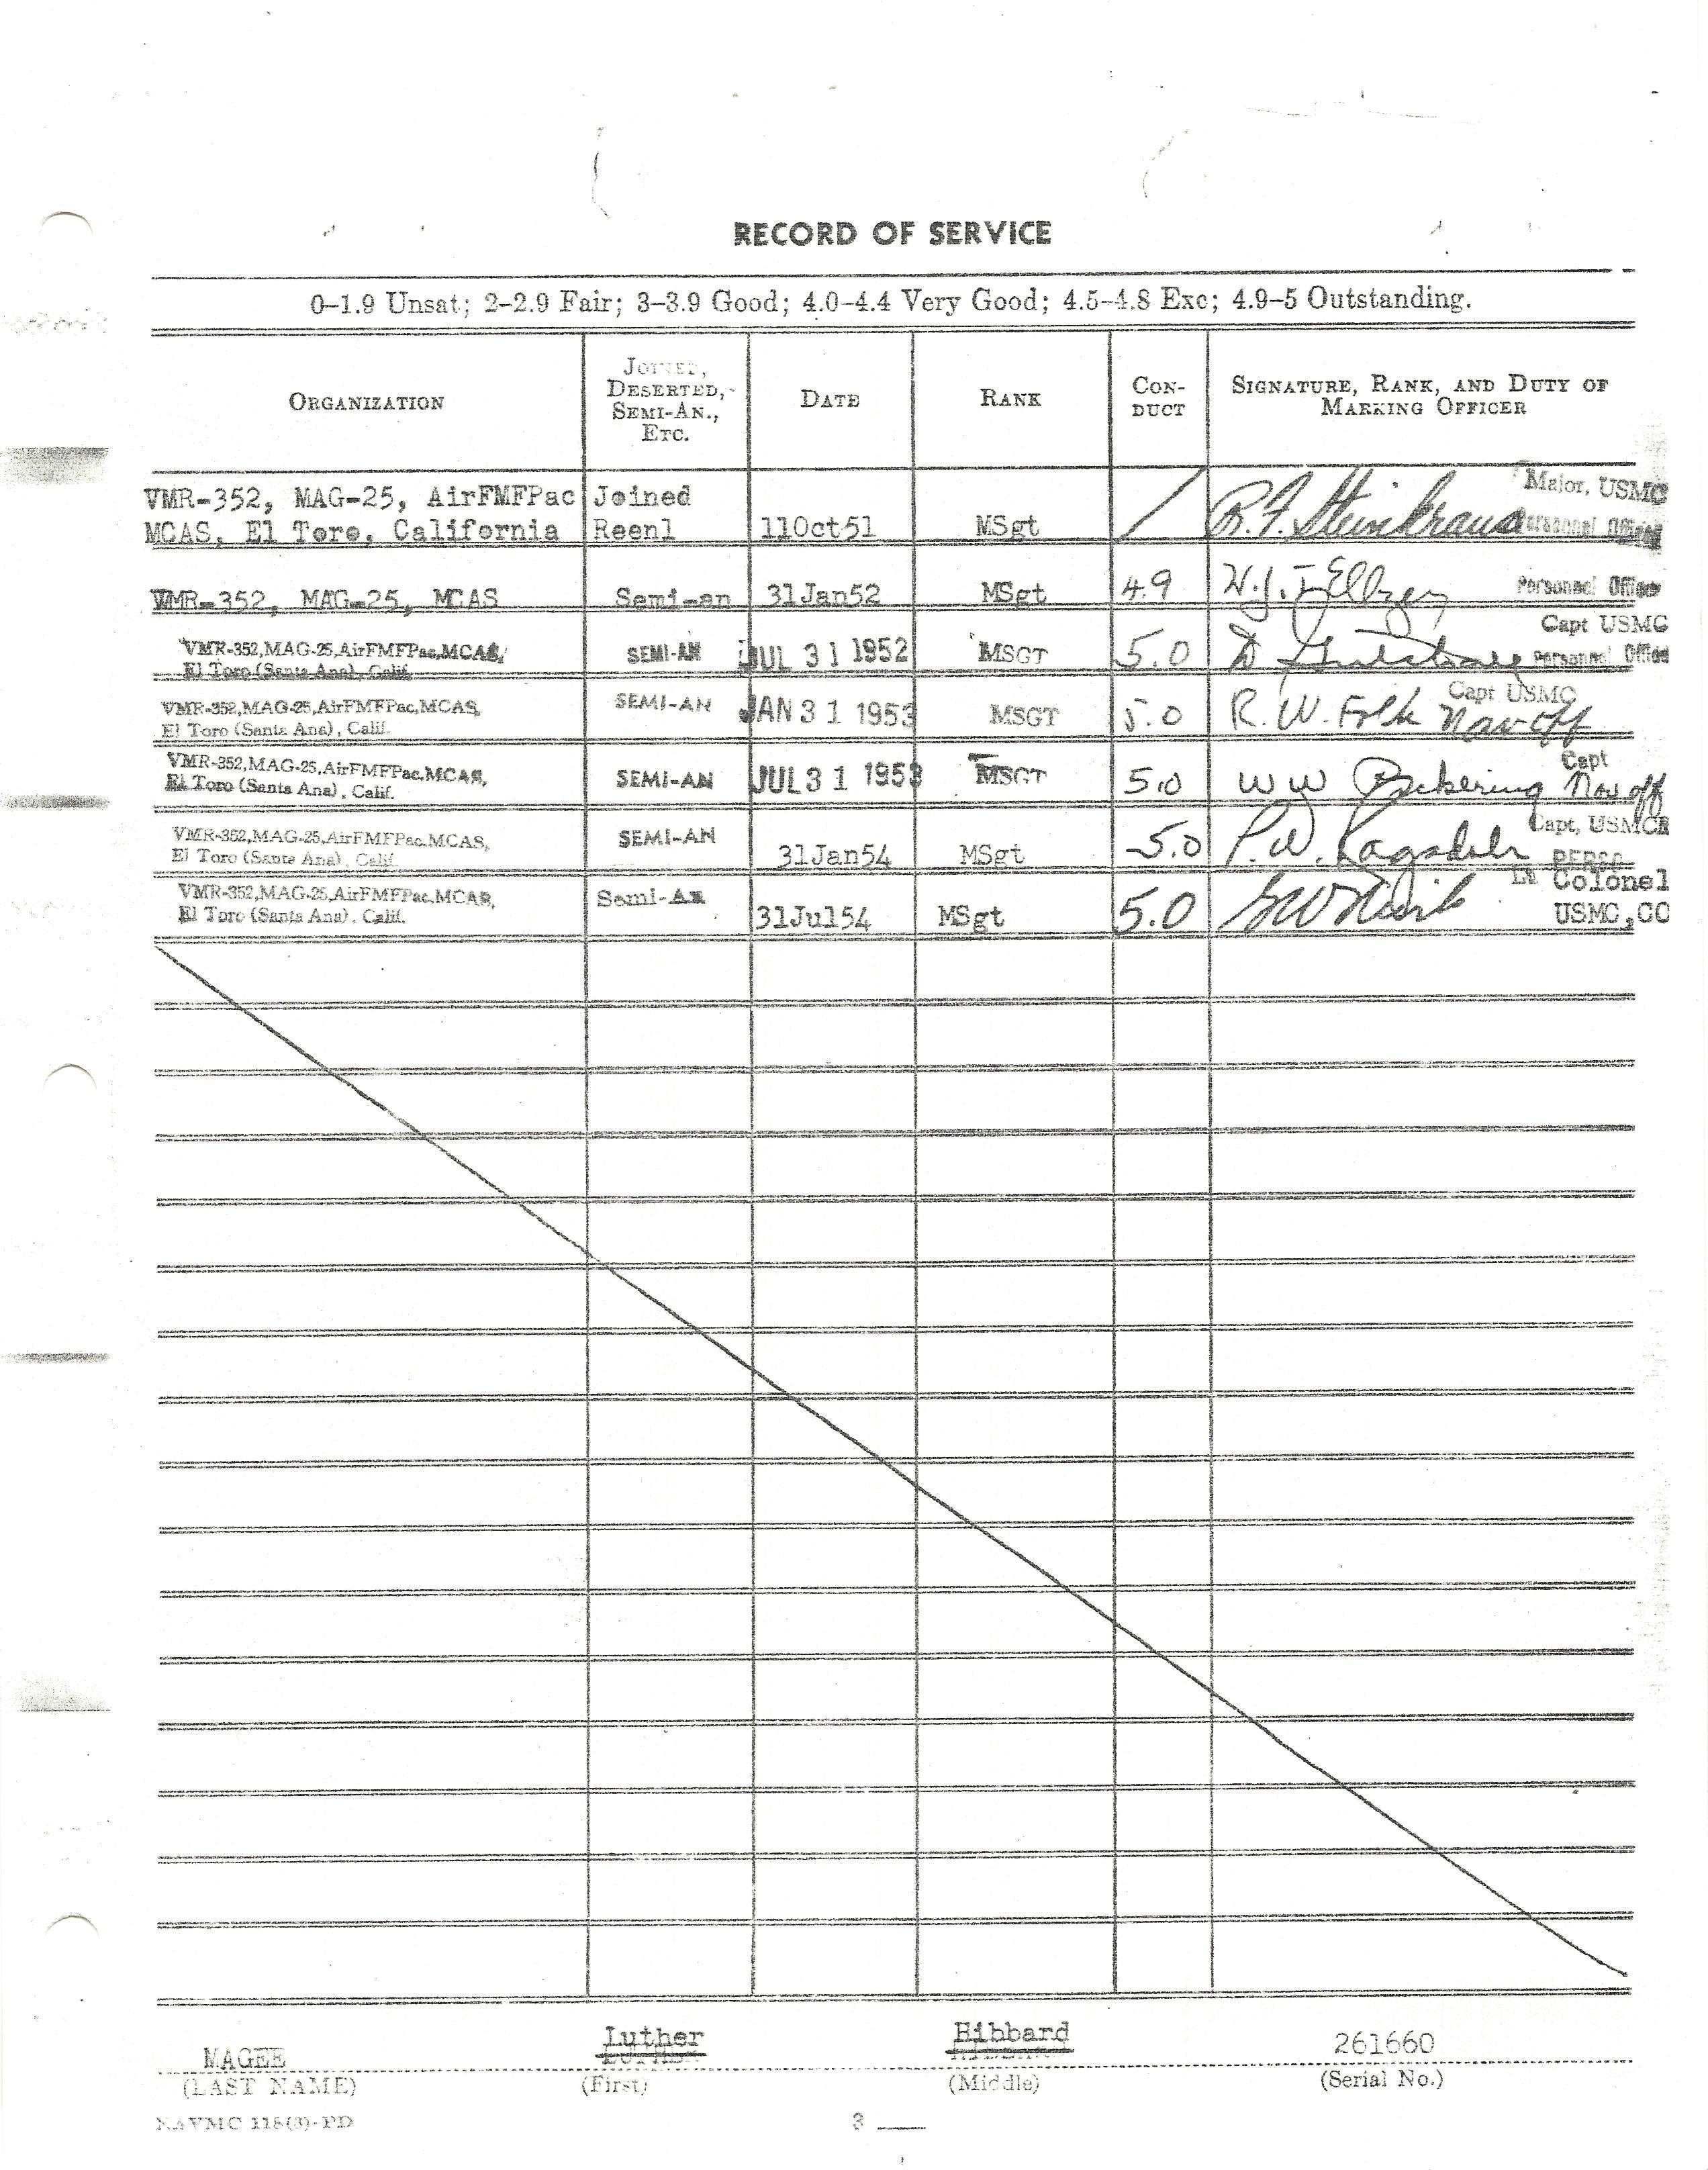 RECORD OF SERVICE
0–1.9 Unsat; 2–2.9 Fair; 3–3.9 Good; 4.0–4.4 Very Good; 4.5–4.8 Exc; 4.9–5 Outstanding.
ORGANIZATION
JOINED,
DESERTED,
SEMI-AN.,
ETC.
DATE
RANK
CON-
DUCT
SIGNATURE, RANK, AND DUTY OF
MARKING OFFICER
VMR-352, MAG-25, AirFMFPac Joined Major, USMC
MCAS, El Toro, California Reenl 11Oct51 MSgt / R.F. Steinkraus Personnel Officer
VMR-352, MAG-25, MCAS Semi-an 31Jan52 MSgt 4.9 W.J. Personnel Officer
Capt USMC
VMR-352,MAG-25,AirFMFPac,MCAS, SEMI-AN JUL 31 1952 MSGT 5.0 D Personnel Officer
El Toro (Santa Ana), Calif.
VMR-352,MAG-25,AirFMFPac,MCAS, SEMI-AN JAN 31 1953 MSGT 5.0 R. W. Folk Capt USMC
El Toro (Santa Ana), Calif. Nav off
VMR-352,MAG-25,AirFMFPac,MCAS, Capt
El Toro (Santa Ana), Calif. SEMI-AN JUL 31 1953 MSGT 5.0 W W Pickering Nav off
VMR-352,MAG-25,AirFMFPac,MCAS, SEMI-AN Capt, USMCR
El Toro (Santa Ana), Calif. 31Jan54 MSgt 5.0 P. W. Ragsdale PERSO
VMR-352,MAG-25,AirFMFPac,MCAS, Semi-An Lt Colonel
El Toro (Santa Ana), Calif. 31Jul54 MSgt 5.0 USMC,CO
MAGEE Luther Hibbard 261660
(LAST NAME) (First) (Middle) (Serial No.)
NAVMC 118(3)-PD 3